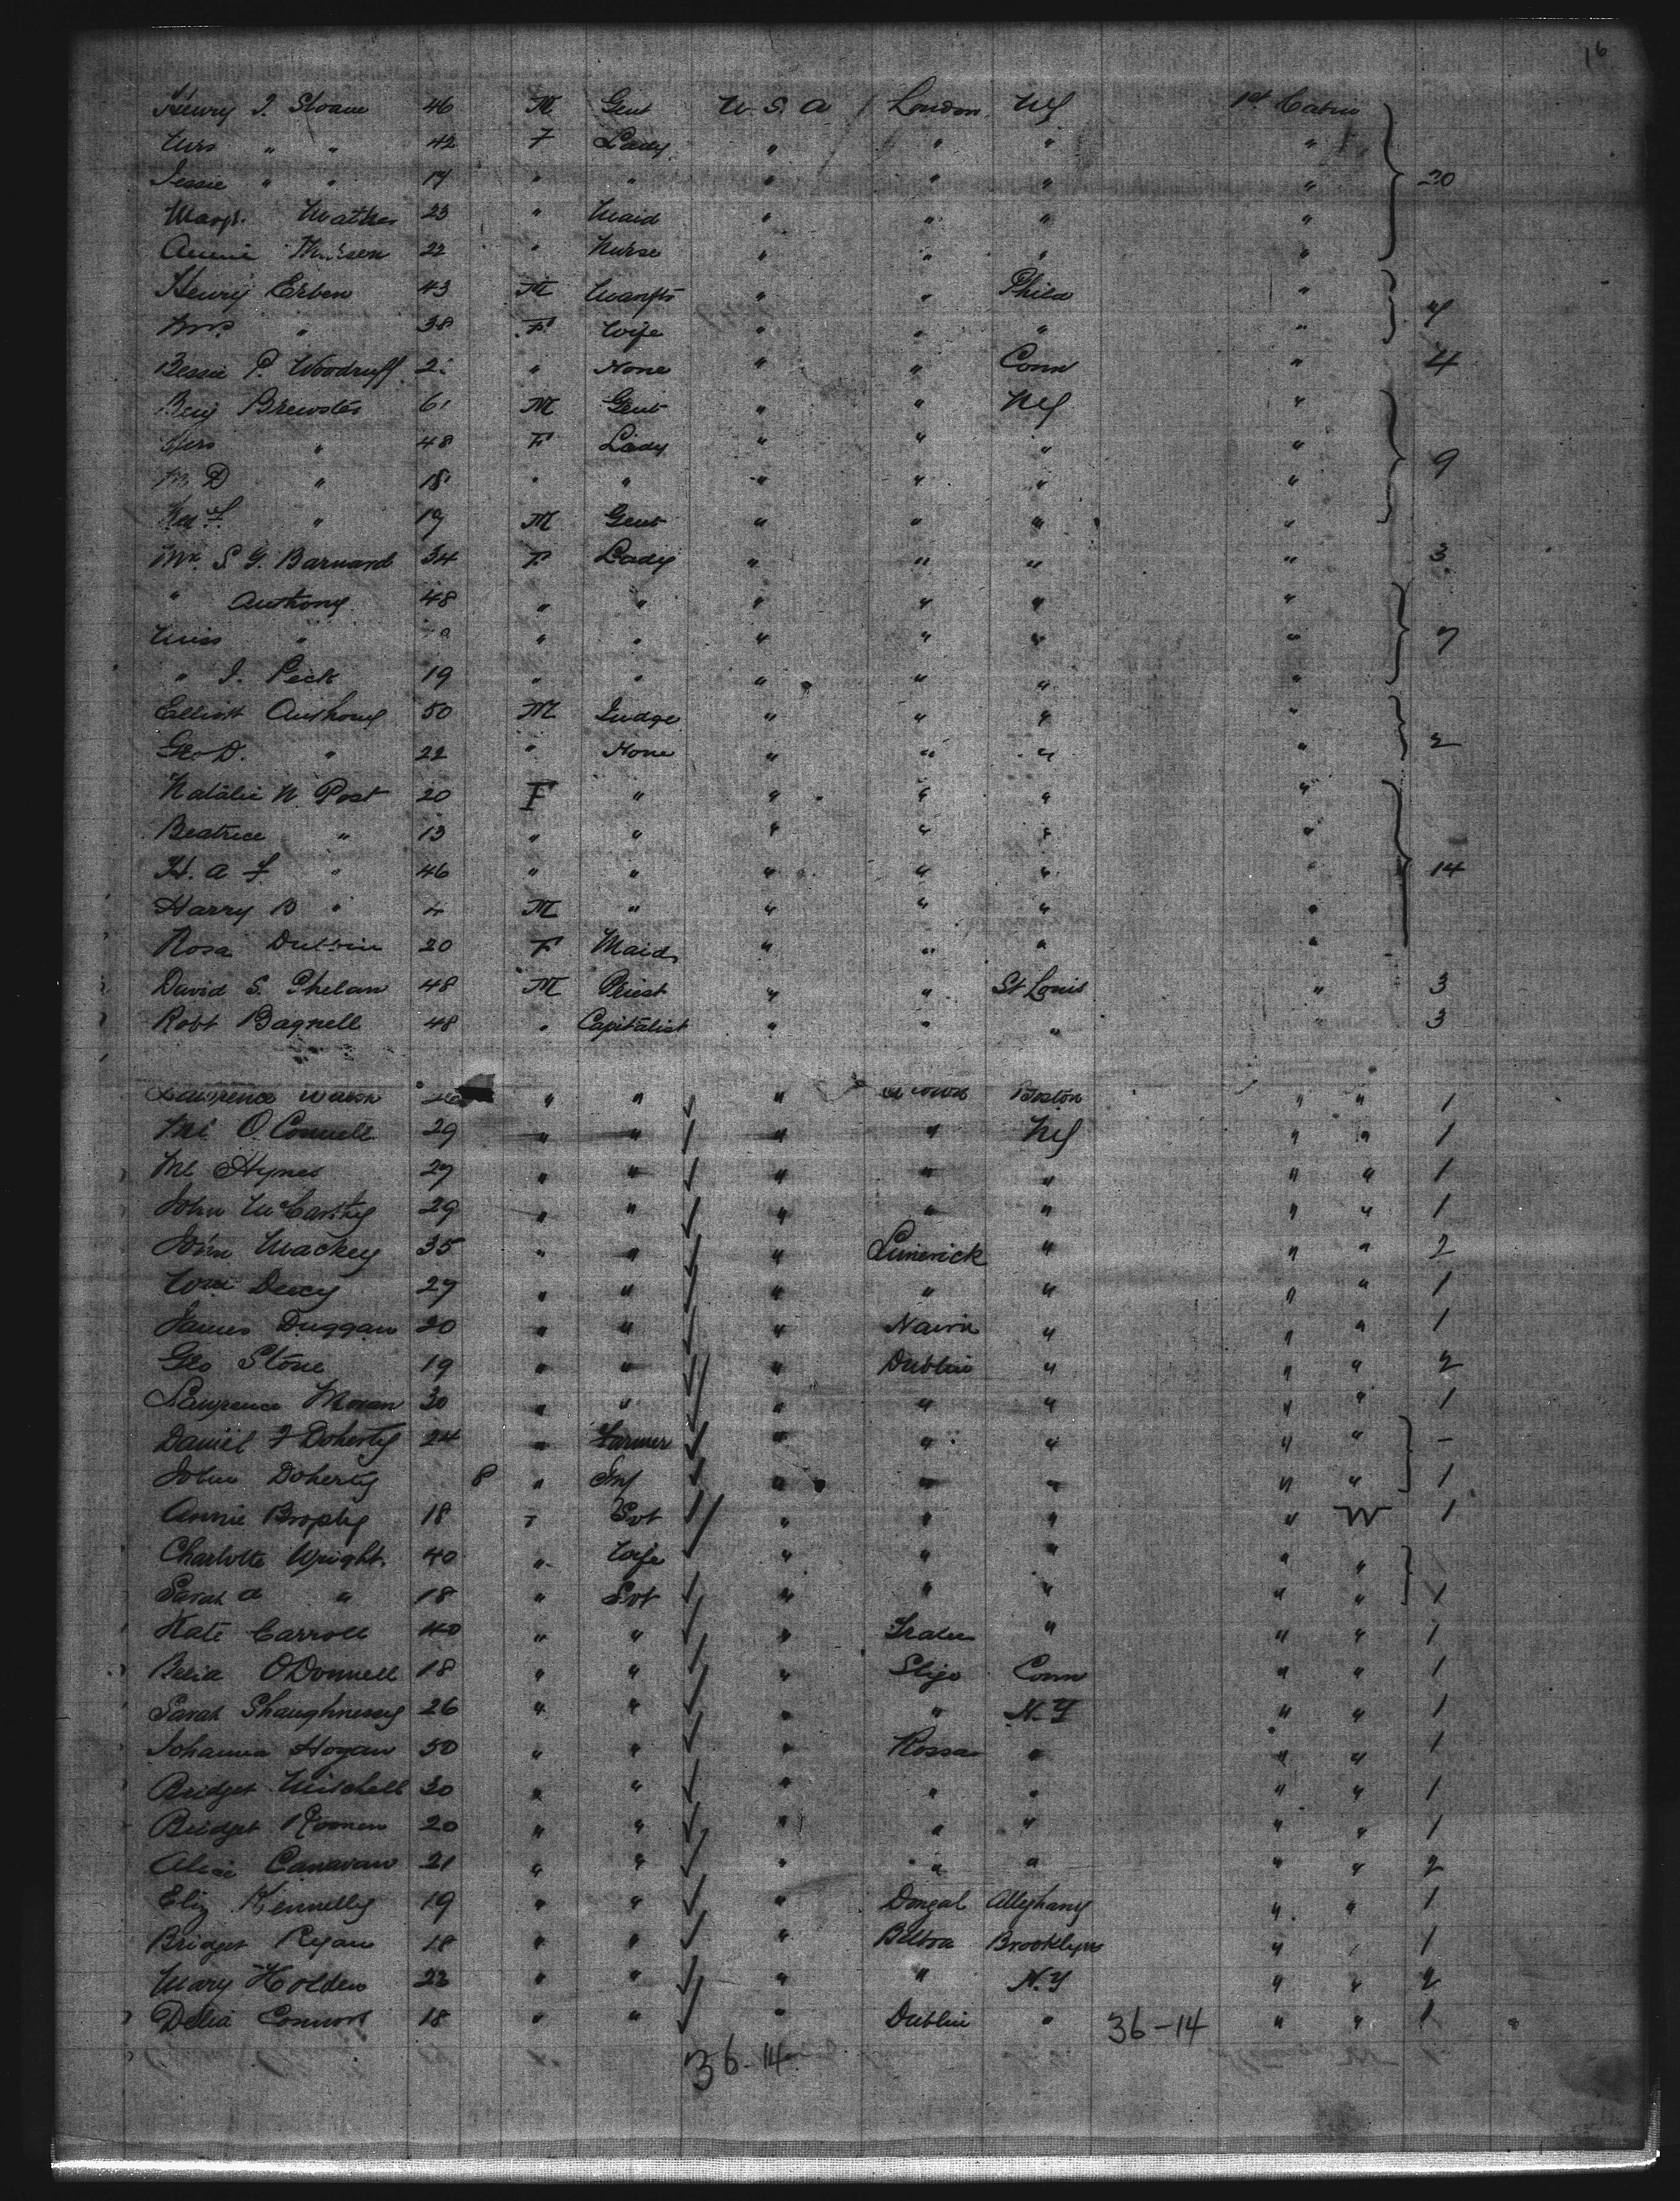 16
Henry I. Sloane 46 M Gent U.S.A London NY 1st Cabin
Mrs " " 42 F Lady " " " "
Jessie " " 17 " " " " " " 20
Margt. 23 " Maid " " " "
Annie 22 " Nurse " " " "
Henry Erben 43 M Manftr " " Phila "
Mrs " 38 F Wife " " " " 4
Bessie P. Woodruff " None " " Conn " 4
Benj Brewster 61 M Gent " " NY "
Mrs " 48 F Lady " " " "
M. D " 18 " " " " " " 9
" 19 M Gent " " " "
Mrs. S G. Barnard 34 F Lady " " " " 3
" Anthony 48 " " " " " "
Miss " " " " " " " 7
" I. Peck 19 " " " " " "
Elliott Anthony 50 M Judge " " " "
Geo D. " 22 " None " " " " 2
Natalie N. Post 20 F " " " " "
Beatrice " 13 " " " " " "
H. A F " 46 " " " " " " 14
Harry B " 4 M " " " " "
Rosa 20 F Maid " " " "
David S. Phelan 48 M Priest " " St Louis " 3
Robt Bagnell 48 " Capitalist " " " " 3
Lawrence " " " Boston " " 1
Ml O. Connell 29 " " " " NY " " 1
Ml Hynes 27 " " " " " " " 1
John McCarthy 29 " " " " " " " 1
John Mackey 35 " " " Limerick " " " 2
Wm 27 " " " " " " " 1
James Duggan 20 " " " Nairn " " " 1
Geo Stone 19 " " " Dublin " " " 2
Lawrence Moran 30 " " " " " " " 1
Daniel F Doherty 24 " Farmer " " " " " -
John Doherty 8 " Inf " " " " " 1
Annie Brophy 18 F Svt " " " " W 1
Charlotte Wright 40 " Wife " " " " "
Sarah A " 18 " Svt " " " " " 1
Kate Carroll 40 " " " Tralee " " " 1
Belia O'Donnell 18 " " " Sligo Conn " " 1
Sarah Shaughnessy 26 " " " " N.Y " " 1
Johanna Hogan 50 " " " Rossa " " " 1
Bridget Mitchell 30 " " " " " " " 1
Bridget 20 " " " " " " " 1
Alice Canavan 21 " " " " " " " 2
Eliz Kennelly 19 " " " Dongal Alleghany " " 1
Bridget Ryan 18 " " " Brooklyn " " 1
Mary Holden 22 " " " " N.Y " " 2
Delia Connors 18 " " " Dublin " 36-14 " " 1
36-14